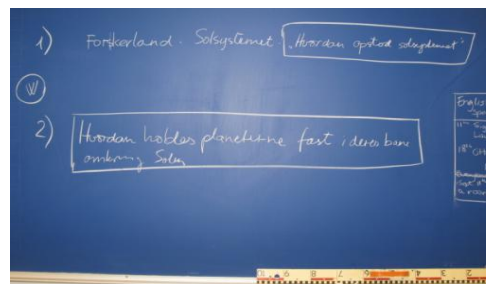 1) Forskerland. Solsystemet "Hvordan opstod solsystemet"
W
2) Hvordan holdes planeterne fast i deres bane
omkring Solen